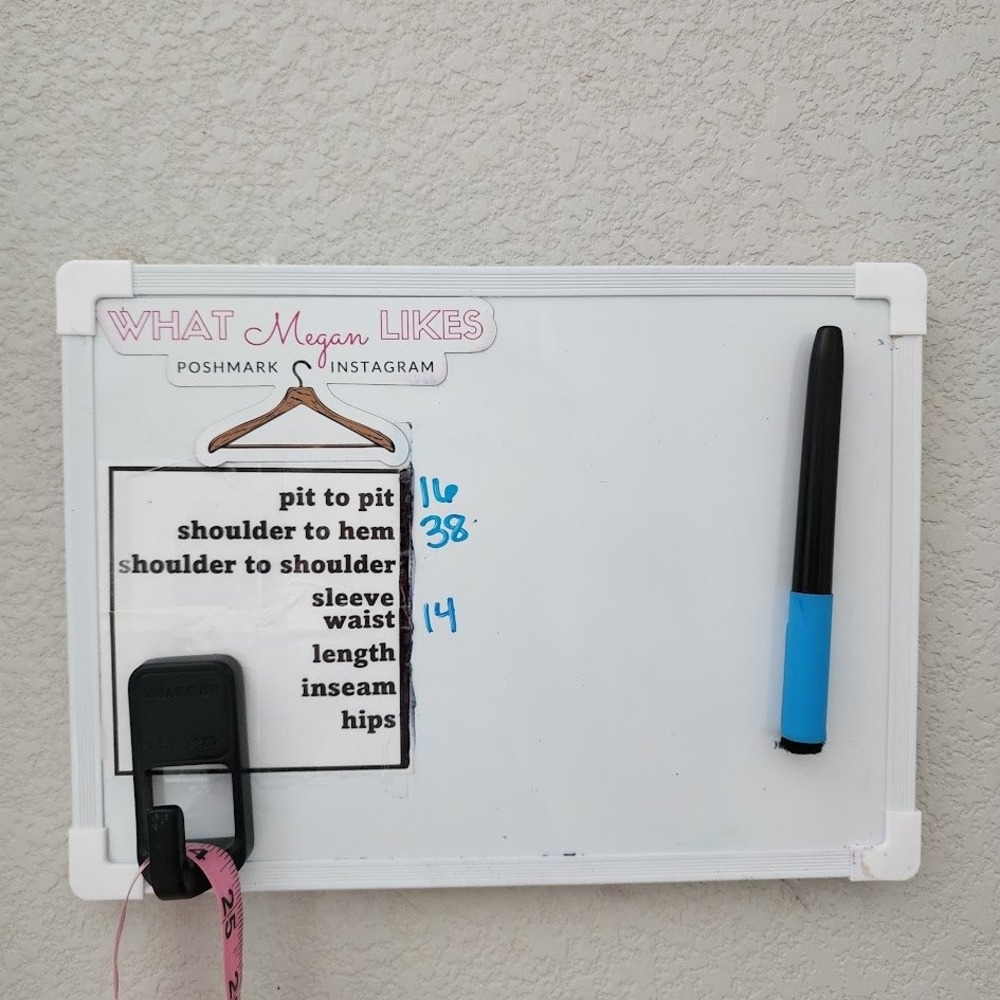 WHAT Megan LIKES
POSHMARK INSTAGRAM
pit to pit 16
shoulder to hem 38
shoulder to shoulder
sleeve
waist 14
length
inseam
hips
4
25
2